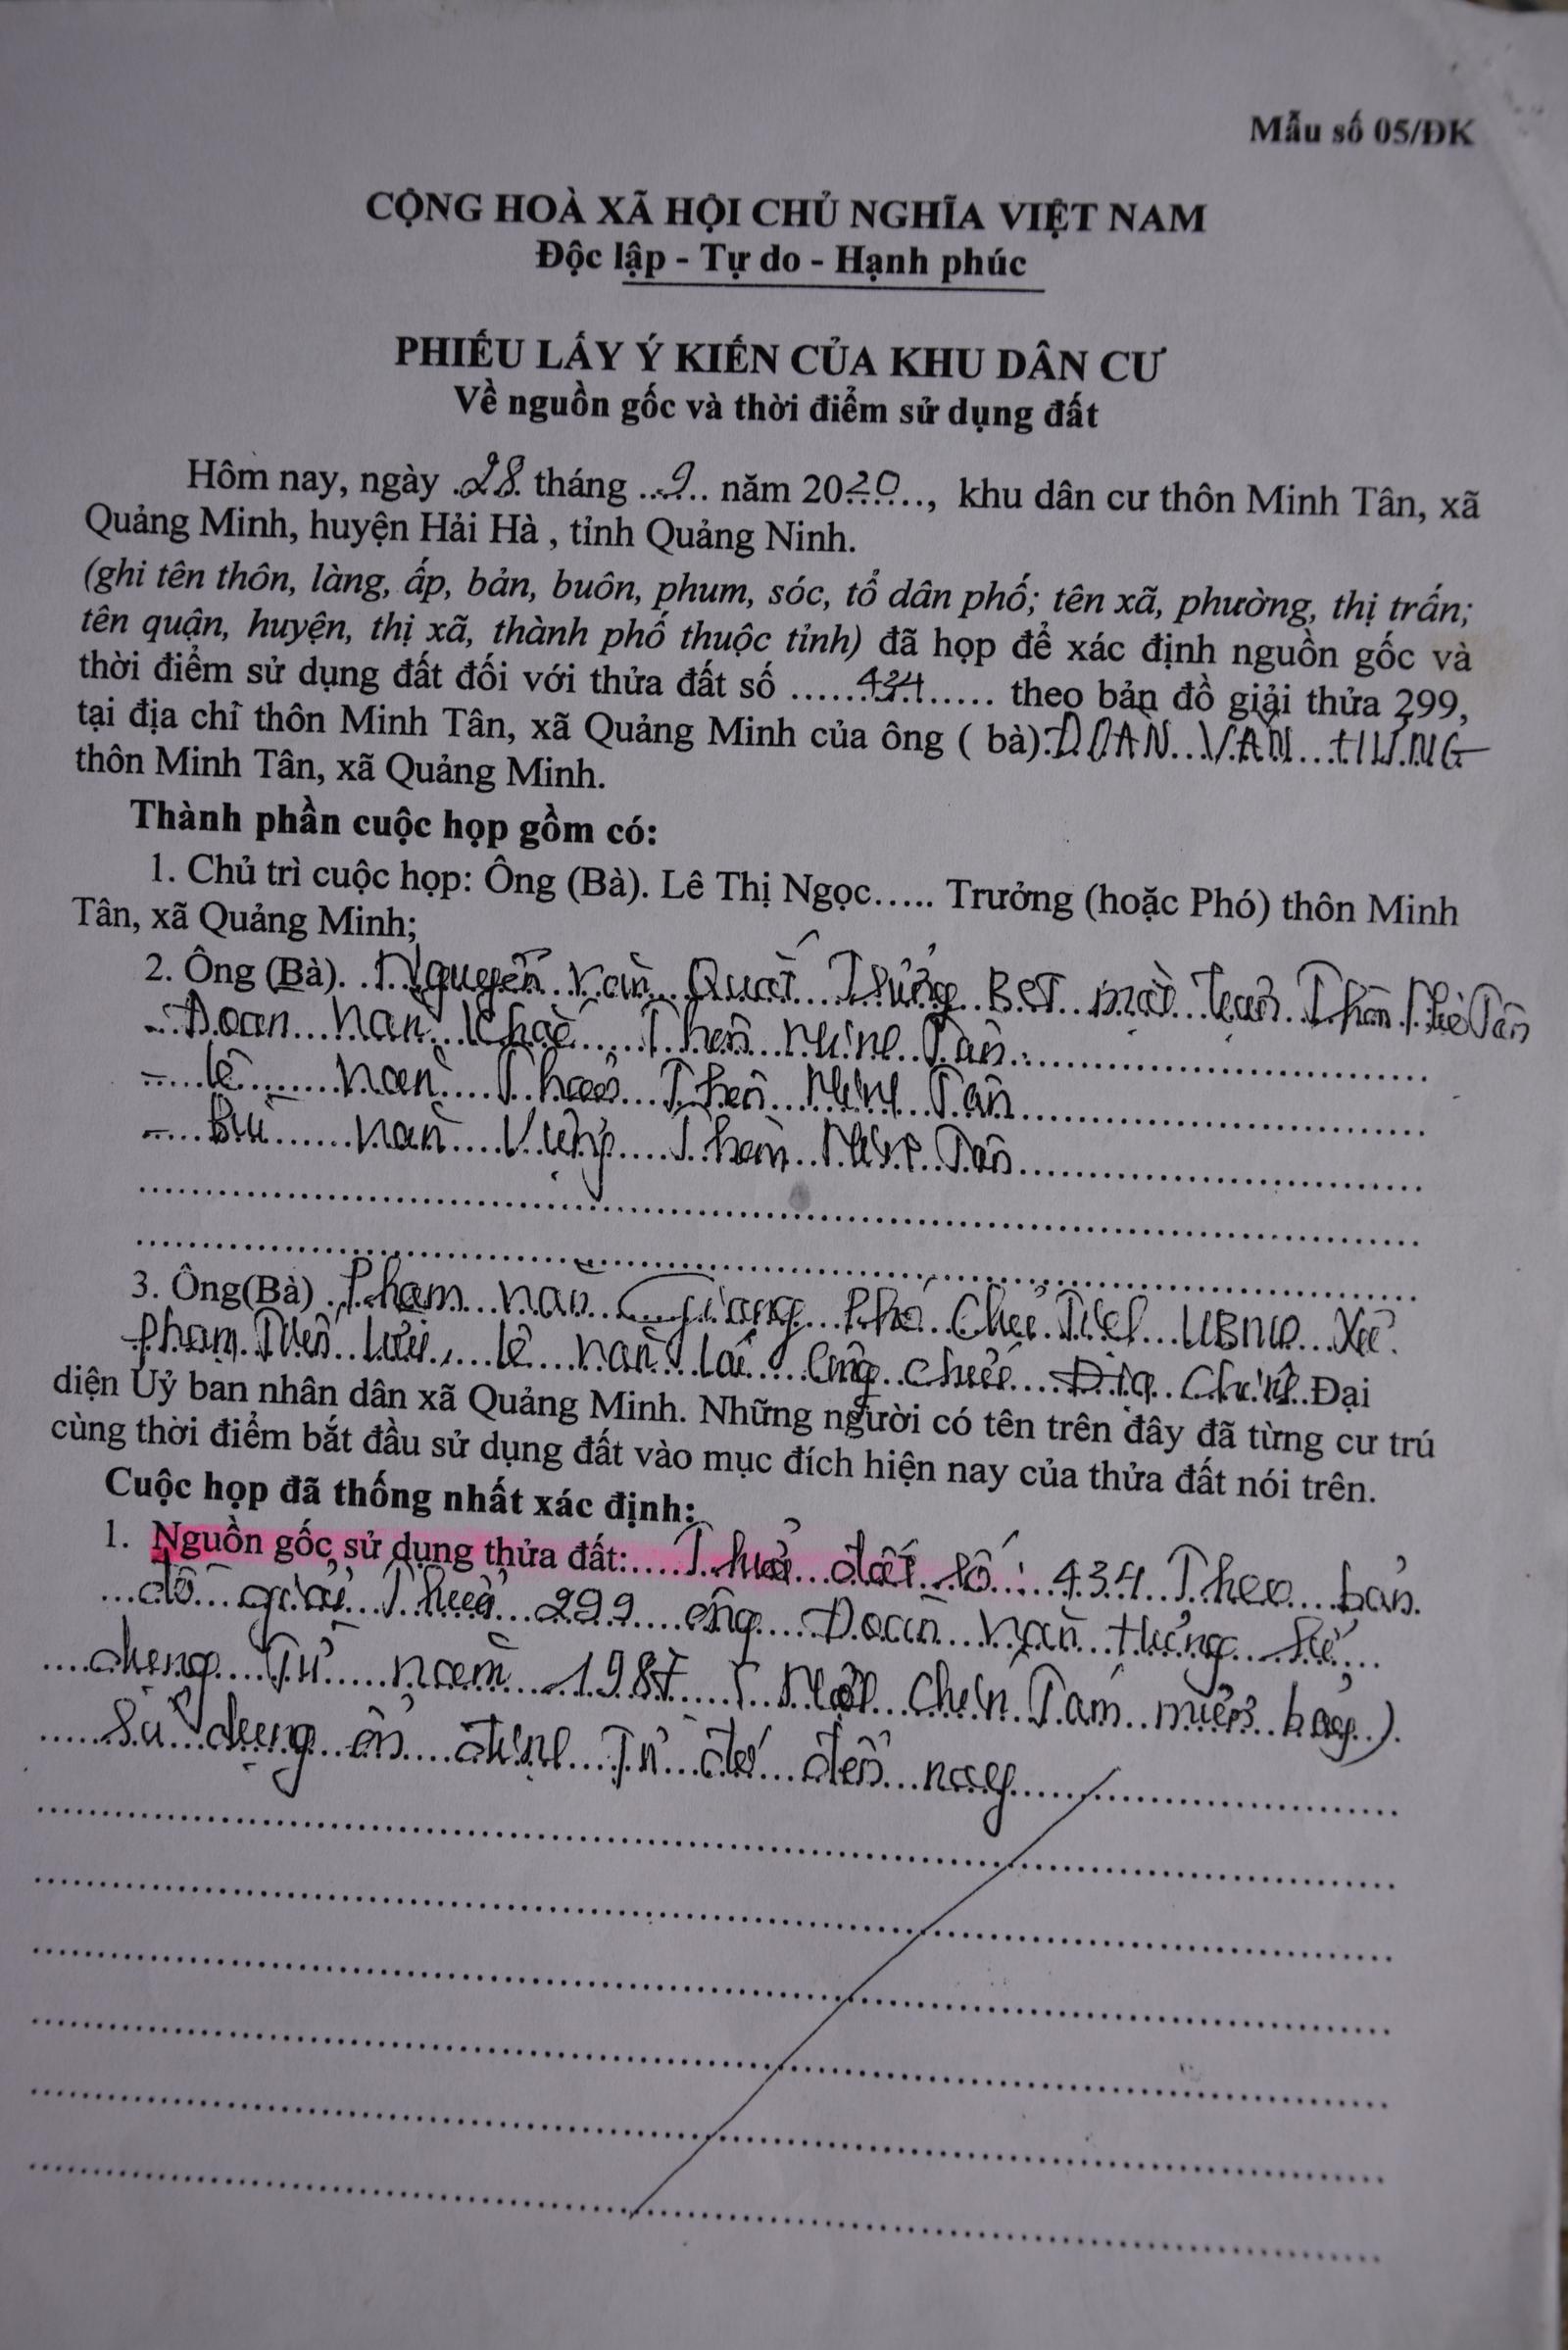 Mẫu số 05/ĐK
CỘNG HOÀ XÃ HỘI CHỦ NGHĨA VIỆT NAM
Độc lập - Tự do - Hạnh phúc
PHIẾU LẤY Ý KIẾN CỦA KHU DÂN CƯ
Về nguồn gốc và thời điểm sử dụng đất
Hôm nay, ngày 28 tháng ..9.. năm 2020..., khu dân cư thôn Minh Tân, xã
Quảng Minh, huyện Hải Hà , tỉnh Quảng Ninh.
(ghi tên thôn, làng, ấp, bản, buôn, phum, sóc, tổ dân phố; tên xã, phường, thị trấn;
tên quận, huyện, thị xã, thành phố thuộc tỉnh) đã họp để xác định nguồn gốc và
thời điểm sử dụng đất đối với thửa đất số .....434..... theo bản đồ giải thửa 299,
tại địa chỉ thôn Minh Tân, xã Quảng Minh của ông ( bà):ĐOÀN VĂN HƯNG
thôn Minh Tân, xã Quảng Minh.
Thành phần cuộc họp gồm có:
1. Chủ trì cuộc họp: Ông (Bà). Lê Thị Ngọc..... Trưởng (hoặc Phó) thôn Minh
Tân, xã Quảng Minh;
2. Ông (Bà). Nguyễn Văn Trưởng BCT mặt trận Thôn
- Đoàn Văn Thôn Minh Tân
- Lê Văn Thôn Minh Tân
- Bùi Văn Thôn Minh Tân
3. Ông(Bà) Phạm Văn Giang Phó Chủ Tịch UBND Xã
Phạm Lê Văn Công chức Địa Chính Đại
diện Uỷ ban nhân dân xã Quảng Minh. Những người có tên trên đây đã từng cư trú
cùng thời điểm bắt đầu sử dụng đất vào mục đích hiện nay của thửa đất nói trên.
Cuộc họp đã thống nhất xác định:
1. Nguồn gốc sử dụng thửa đất: Thửa đất số: 434 Theo bản
đồ giải Thửa 299 ông Đoàn Văn Hưng sử
dụng Từ năm 1987 ( Một chín Tám mươi bảy).
Sử dụng ổn định Từ đó đến nay